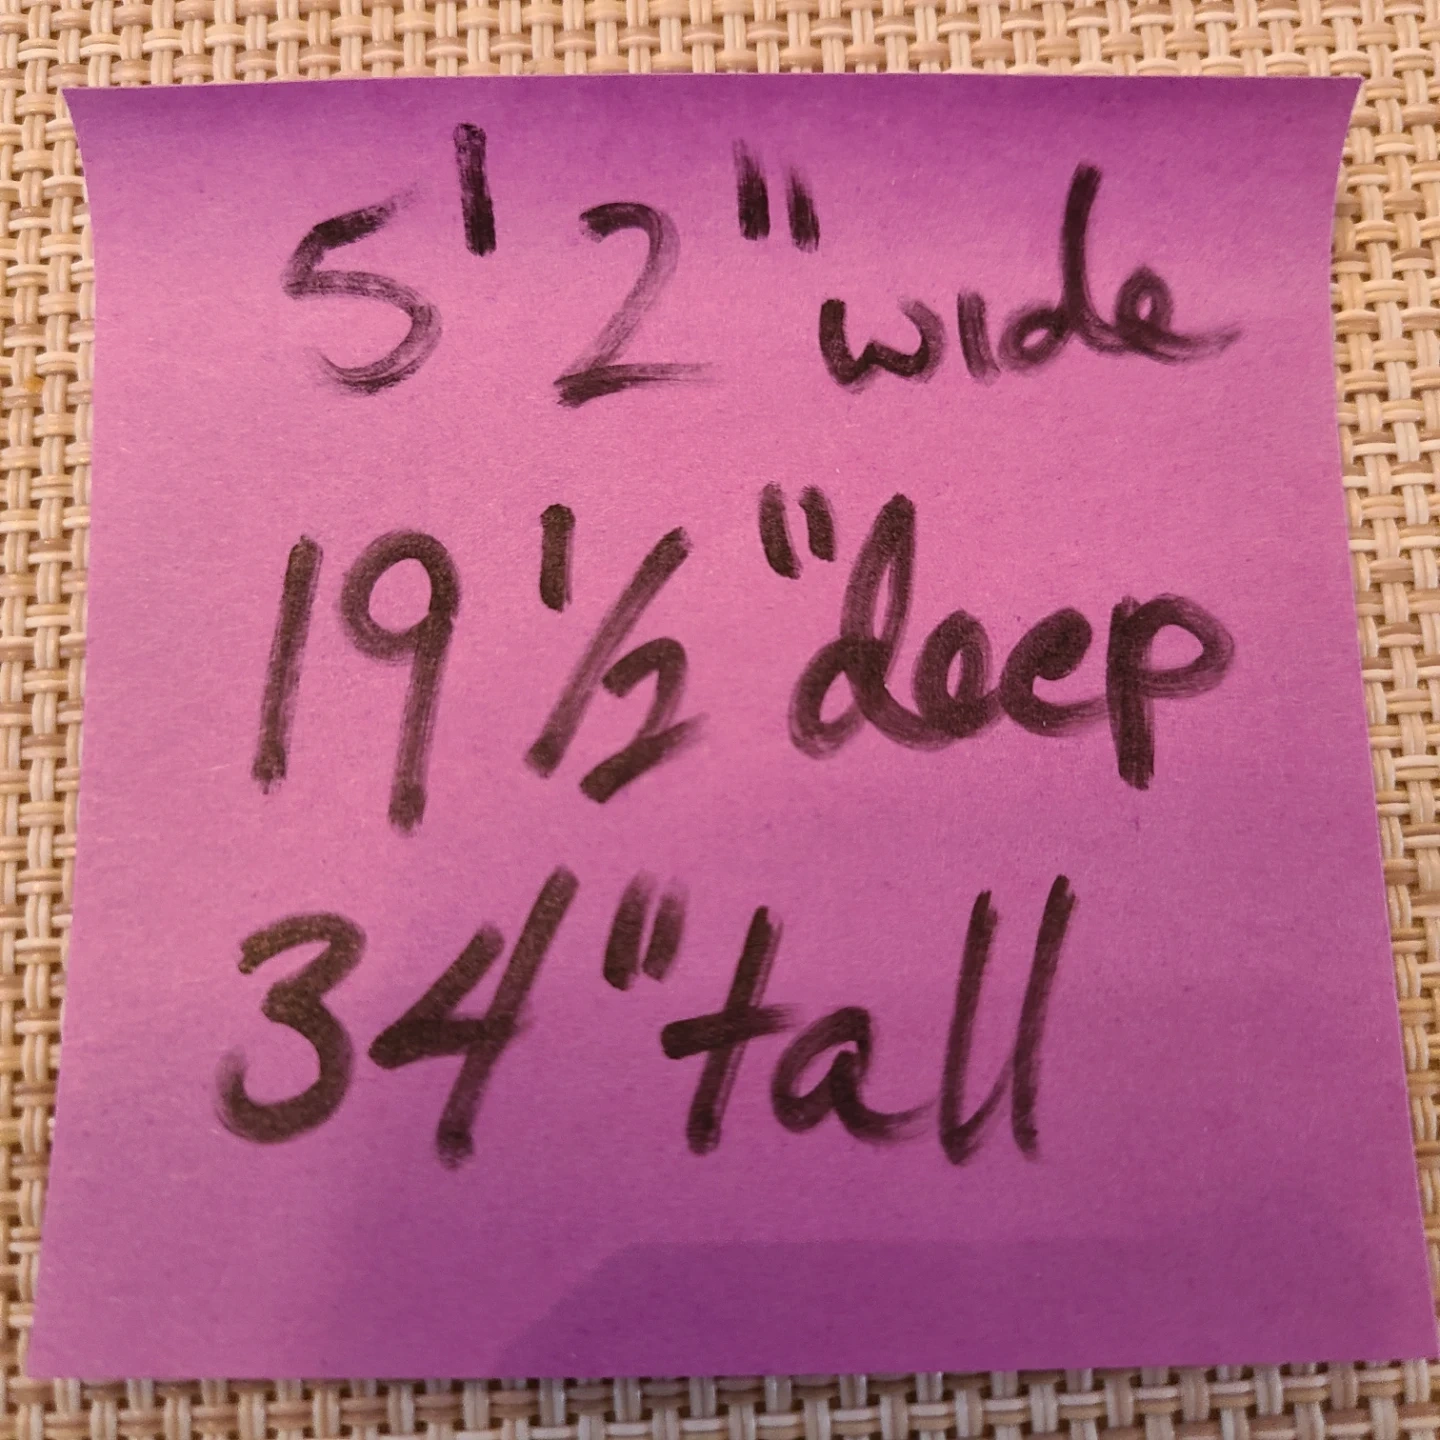 5'2" wide
19 1/2" deep
34" tall